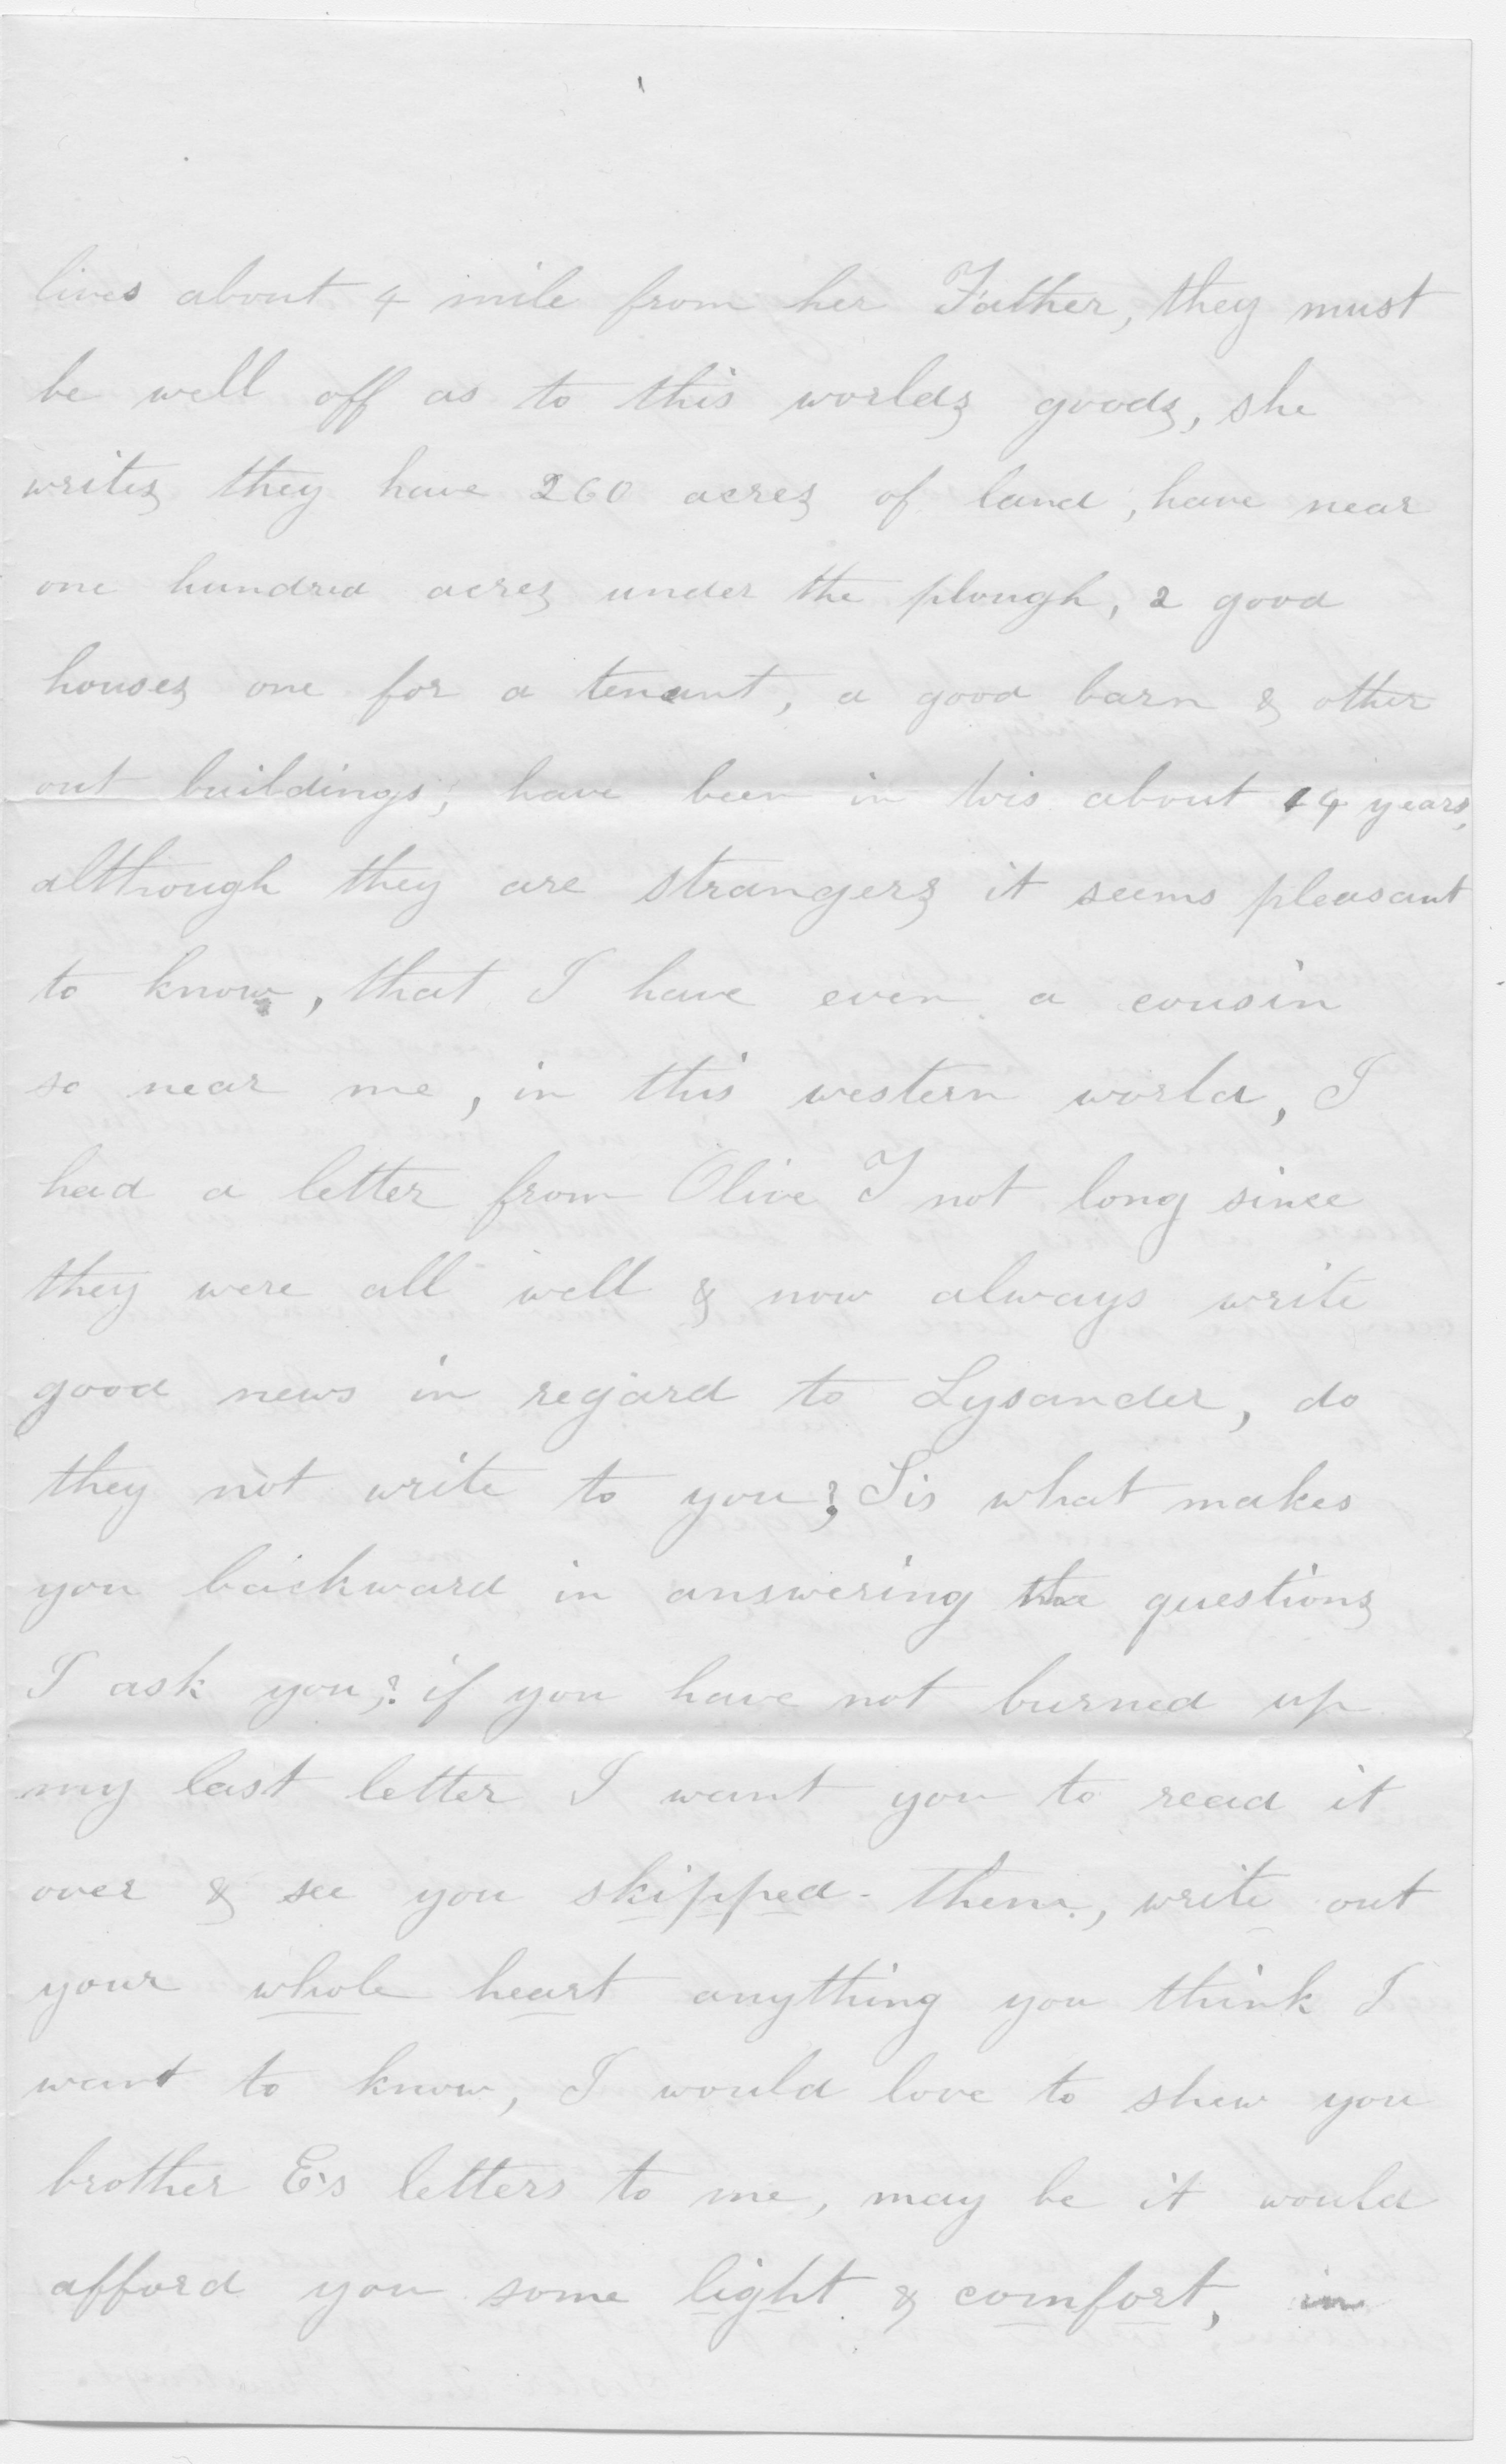 lives about 4 mile from her Father, they must
be well off as to this worlds goods, she
writes they have 260 acres of land, have near
one hundred acres under the plough, 2 good
houses one for a tenant, a good barn & other
out buildings, have been in Wis about 14 years,
although they are strangers it seems pleasant
to know, that I have even a cousin
so near me, in this western world, I
had a letter from Olive J not long since
they were all well & now always write
good news in regard to Lysander, do
they not write to you? Sis what makes
you backward in answering the questions
I ask you? if you have not burned up
my last letter I want you to read it
over & see you skipped them, write out
your whole heart anything you think I
want to know, I would love to shew you
brother E's letters to me, may be it would
afford you some light & comfort, in